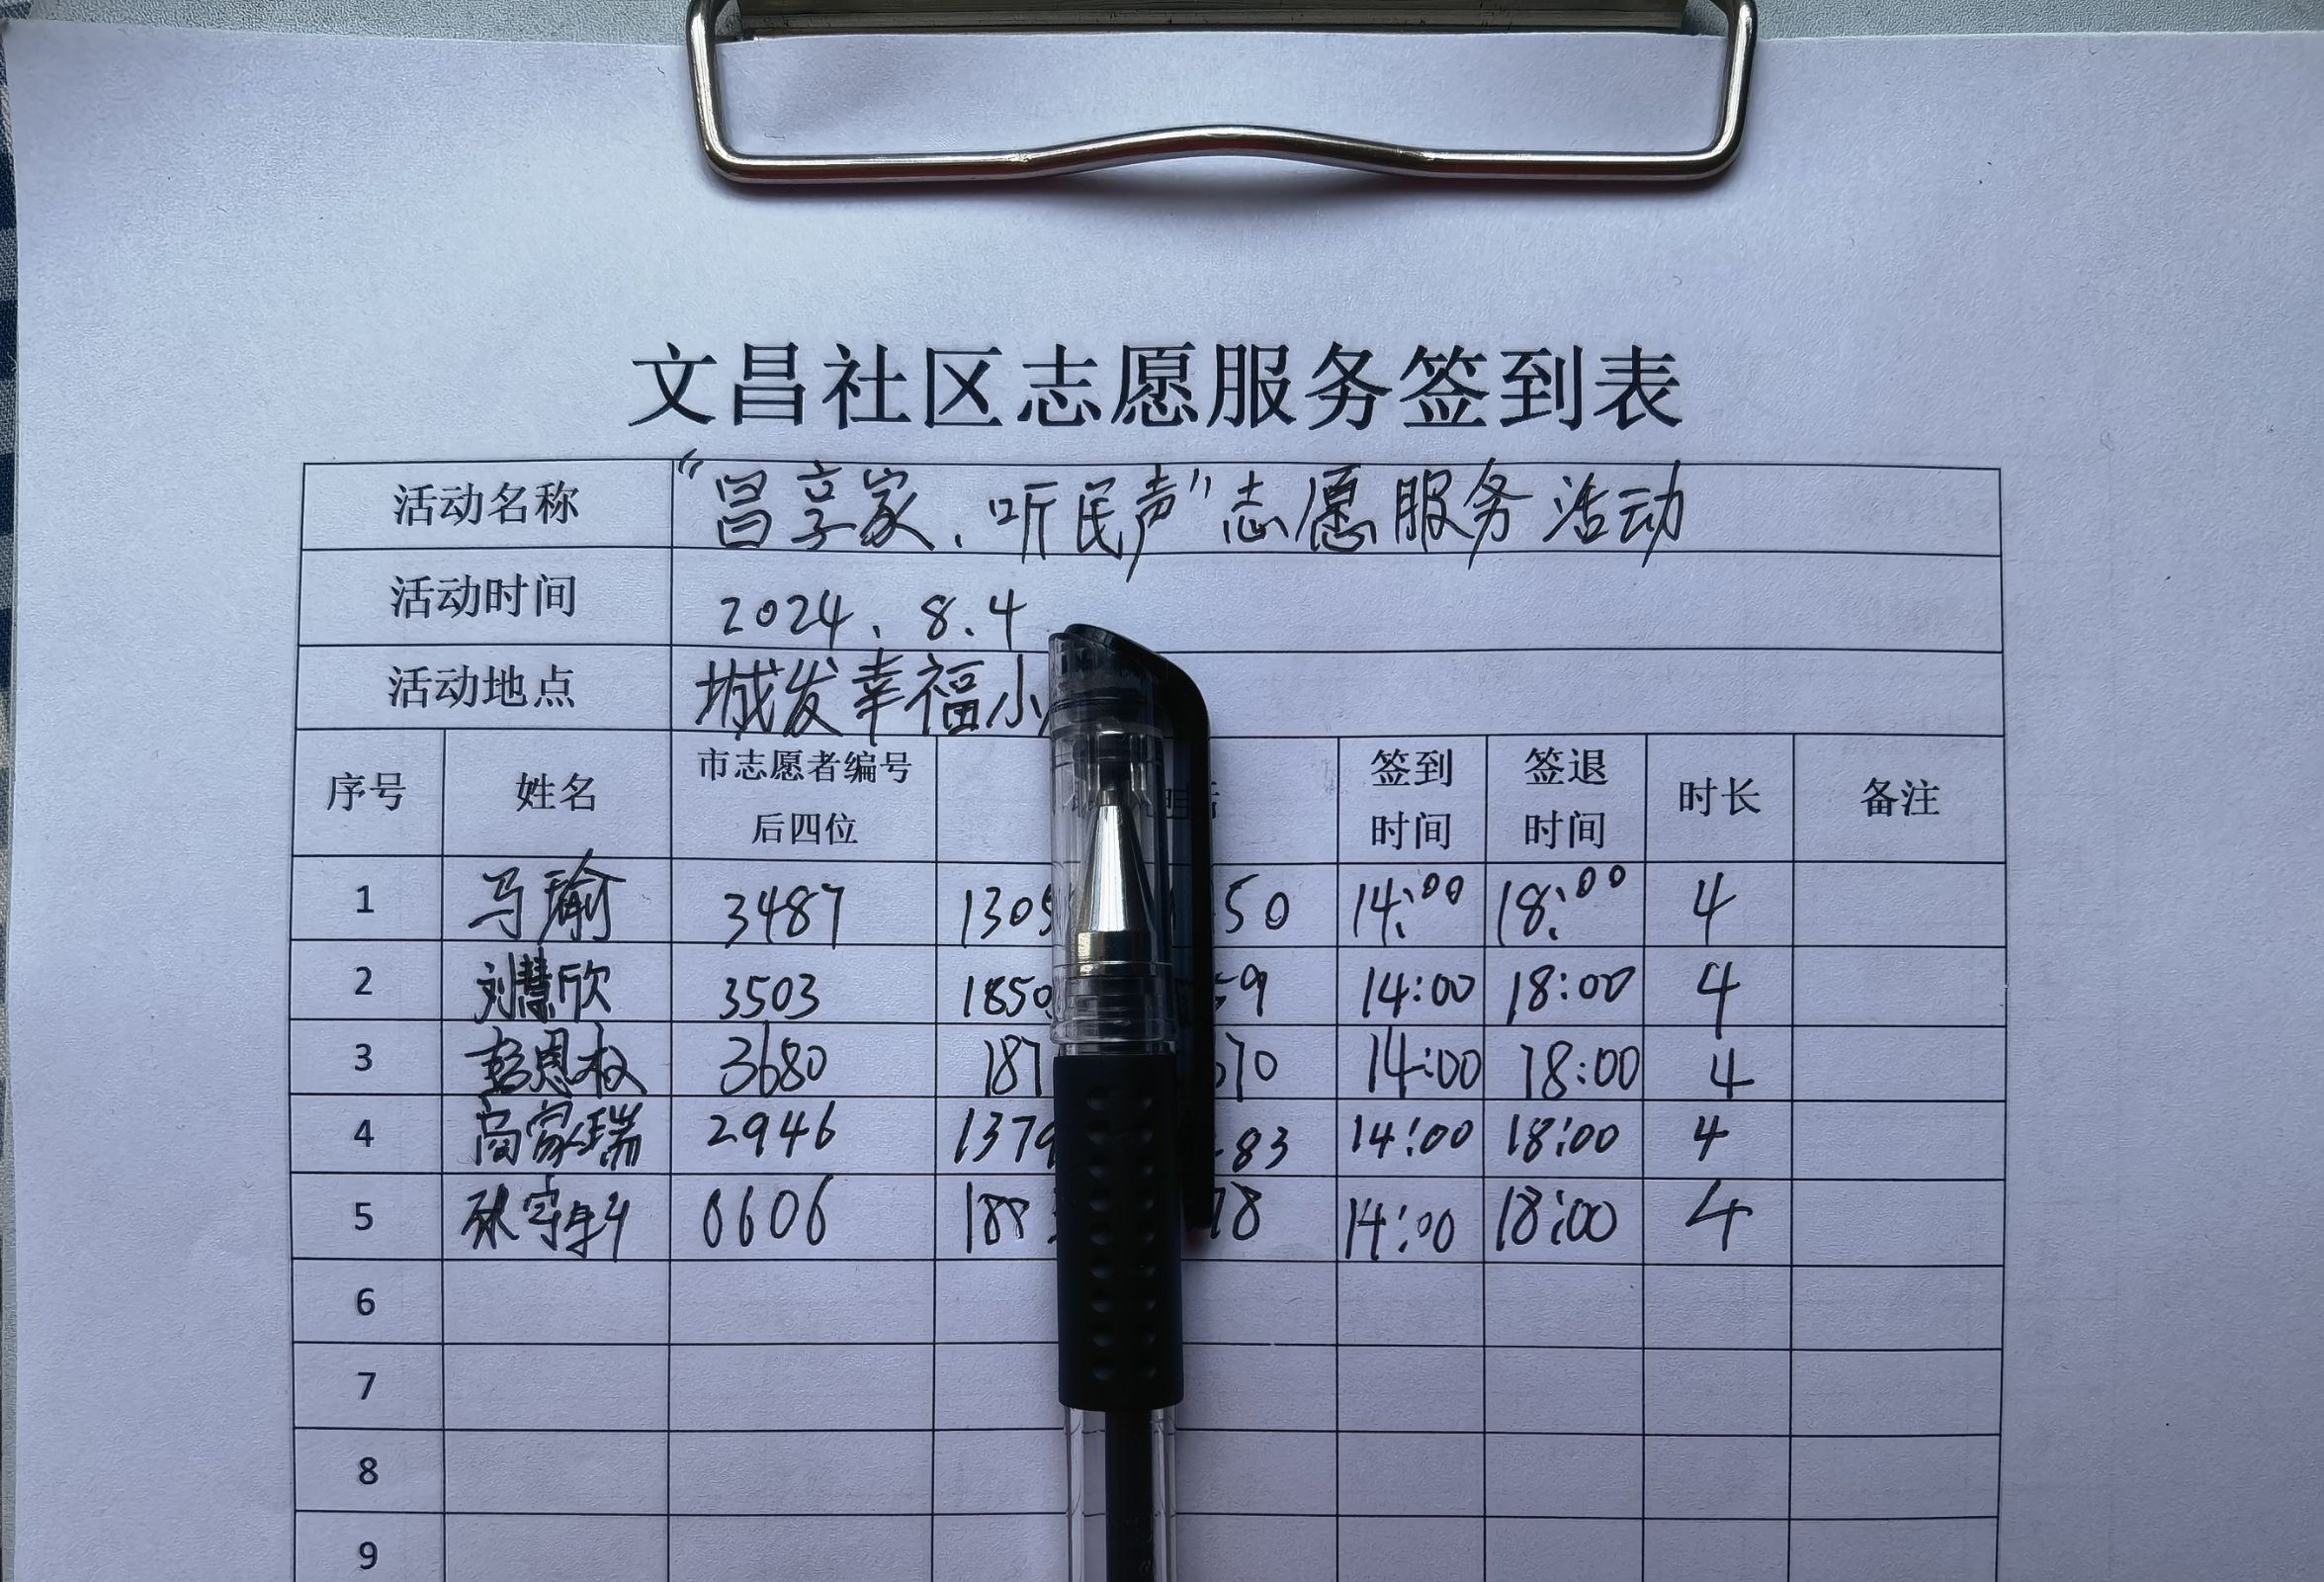 文昌社区志愿服务签到表
活动名称 “昌享家、听民声”志愿服务活动
活动时间 2024.8.4
活动地点 城发幸福小
序号 姓名 市志愿者编号后四位 签到时间 签退时间 时长 备注
1 马瑜 3487 1305 50 14:00 18:00 4
2 刘慧欣 3503 1850 59 14:00 18:00 4
3 彭恩权 3680 187 70 14:00 18:00 4
4 高家瑞 2946 1379 83 14:00 18:00 4
5 张 0606 188 78 14:00 18:00 4
6
7
8
9